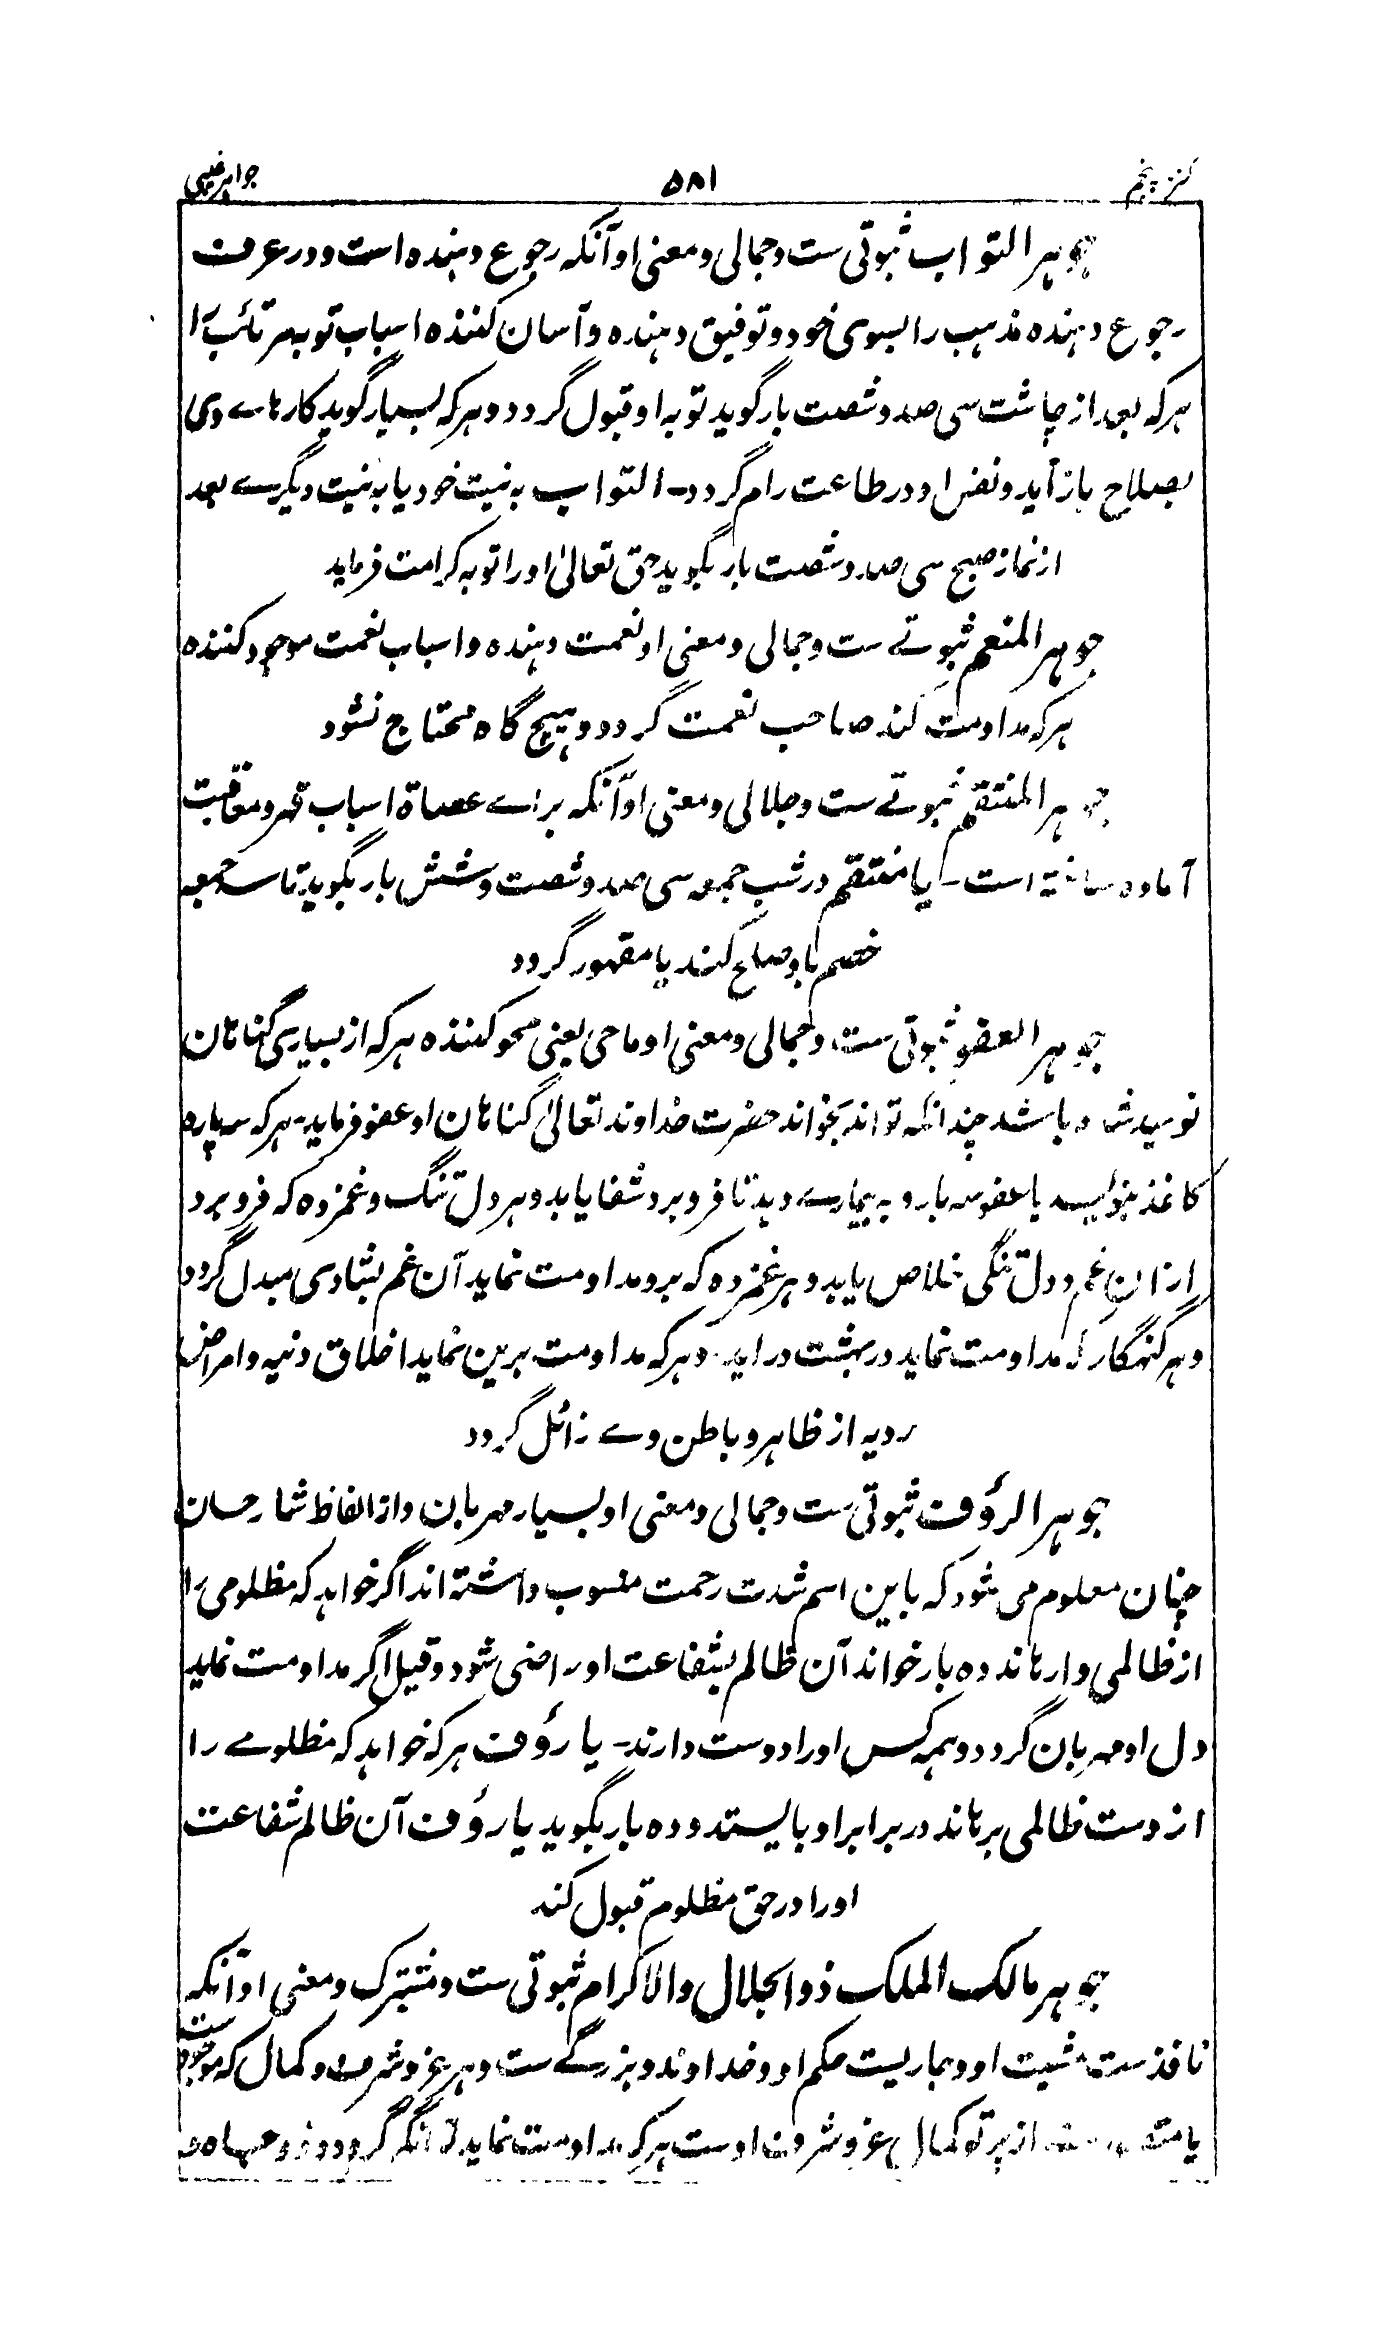 کنز پنجم ۵۸۱ جواہر غیبی
جوہر التواب ثبوتی ست و جمالی و معنی او آنکہ رجوع دہندہ است و در عرف
رجوع دہندہ مذہب را بسوی خود و توفیق دہندہ و آسان کنندہ اسباب توبہ ہر تائب را
ہر کہ بعد از چاشت سی صد و شصت بار گوید توبہ او قبول گردد و ہر کہ بسیار گوید کارہاے وی
بصلاح باز آید و نفس او در طاعت رام گردد۔ التواب بہ نیت خود یا بہ نیت دیگرے بعد
از نماز صبح سی صد و شصت بار بگوید حق تعالیٰ او را توبہ کرامت فرماید
جوہر المنعم ثبوتے ست و جمالی و معنی او نعمت دہندہ و اسباب نعمت موجود کنندہ
ہر کہ مداومت کند صاحب نعمت گردد و ہیچ گاہ محتاج نشود
جوہر المنتقم ثبوتے ست و جلالی و معنی او آنکہ براے عصاۃ اسباب قہر و معاقبت
آمادہ ساختہ است۔ یا منتقم در شب جمعہ سی صد و شصت و شش بار بگوید تا سہ جمعہ
خصم با و صلح کند یا مقہور گردد
جوہر العفو ثبوتی ست و جمالی و معنی او ماحی یعنی محو کنندہ ہر کہ از بسیاری گناہان
نومید شدہ باشد چندانکہ تواند بخواند حضرت خداوند تعالیٰ گناہان او عفو فرماید۔ ہر کہ سہ پارہ
کاغذ بنویسد یا عفو سہ بار و بہ بیمارے دہد تا فرو برد شفا یابد و ہر دل تنگ و غمزدہ کہ فرو برد
از ان غم و دل تنگی خلاص یابد و ہر غمزدہ کہ برو مداومت نماید آن غم بشادی مبدل گردد
و ہر گنہگار کہ مداومت نماید در بہشت در اید۔ و ہر کہ مداومت برین نماید اخلاق دنیہ و امراض
ردیہ از ظاہر و باطن وے زائل گردد
جوہر الرؤف ثبوتی ست و جمالی و معنی او بسیار مہربان و از الفاظ شارحان
چنان معلوم می شود کہ باین اسم شدت رحمت منسوب داشتہ اند اگر خواہد کہ مظلومی را
از ظالمی وارہاند دہ بار خواند آن ظالم بشفاعت او راضی شود و قیل اگر مداومت نماید
دل او مہربان گردد و ہمہ کس او را دوست دارند۔ یا رؤف ہر کہ خواہد کہ مظلومے را
از دست ظالمی برہاند در برابر او بایستد و دہ بار بگوید یا رؤف آن ظالم شفاعت
او را در حق مظلوم قبول کند
جوہر مالک الملک ذو الجلال والاکرام ثبوتی ست و مشترک و معنی او آنکہ
نافذ ست مشیت او و جاریست حکم او و خداوند و بزرگے ست و ہر عز و شرف و کمال کہ موجود ست
یا از پرتو کمال عز و شرف اوست ہر کہ مداومت نماید توانگر گردد و